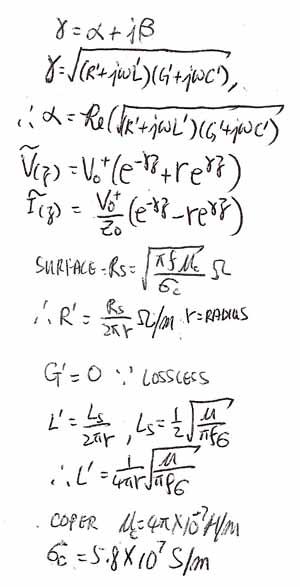 γ = α + jβ
γ = √(R'+jωL')(G'+jωC') ,
∴ α = Re(√(R'+jωL')(G'+jωC'))
Ṽ(z) = V₀⁺(e^-γz + re^γz)
Ĩ(z) = V₀⁺/Z₀ (e^-γz - re^γz)
SURFACE - Rs = √(πfμc/σc) Ω
∴ R' = Rs/2πr Ω/m r = RADIUS
G' = 0 ∵ LOSSLESS
L' = Ls/2πr , Ls = 1/2 √(μ/πfσ)
∴ L' = 1/4πr √(μ/πfσ)
COPER μc = 4π × 10^-7 H/m
σc = 5.8 × 10^7 S/m